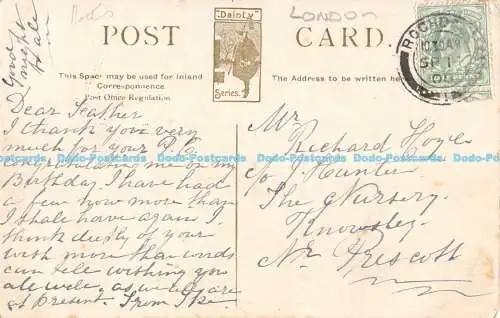 LONDON
POST CARD.
"Dainty"
Series.
This Space may be used for Inland
Correspondence.
Post Office Regulation.
The Address to be written here
ROCHD
10.30 AM
SP 1
Good
night
Dear Feather
I thank you very
much for your P.C
me on my
Birthday I have had
a few now more than
I shale have again I
think deeply of your
wish more than words
can tele wishing you
ale wele, as we are
at Present. From Ike.
Mr
Richard Hoyle
c/o Hunter
The Nursery
Knowsley
Nr Prescott
Dodo-Postcards Dodo-Postcards Dodo-Postcards Dodo-Postcards